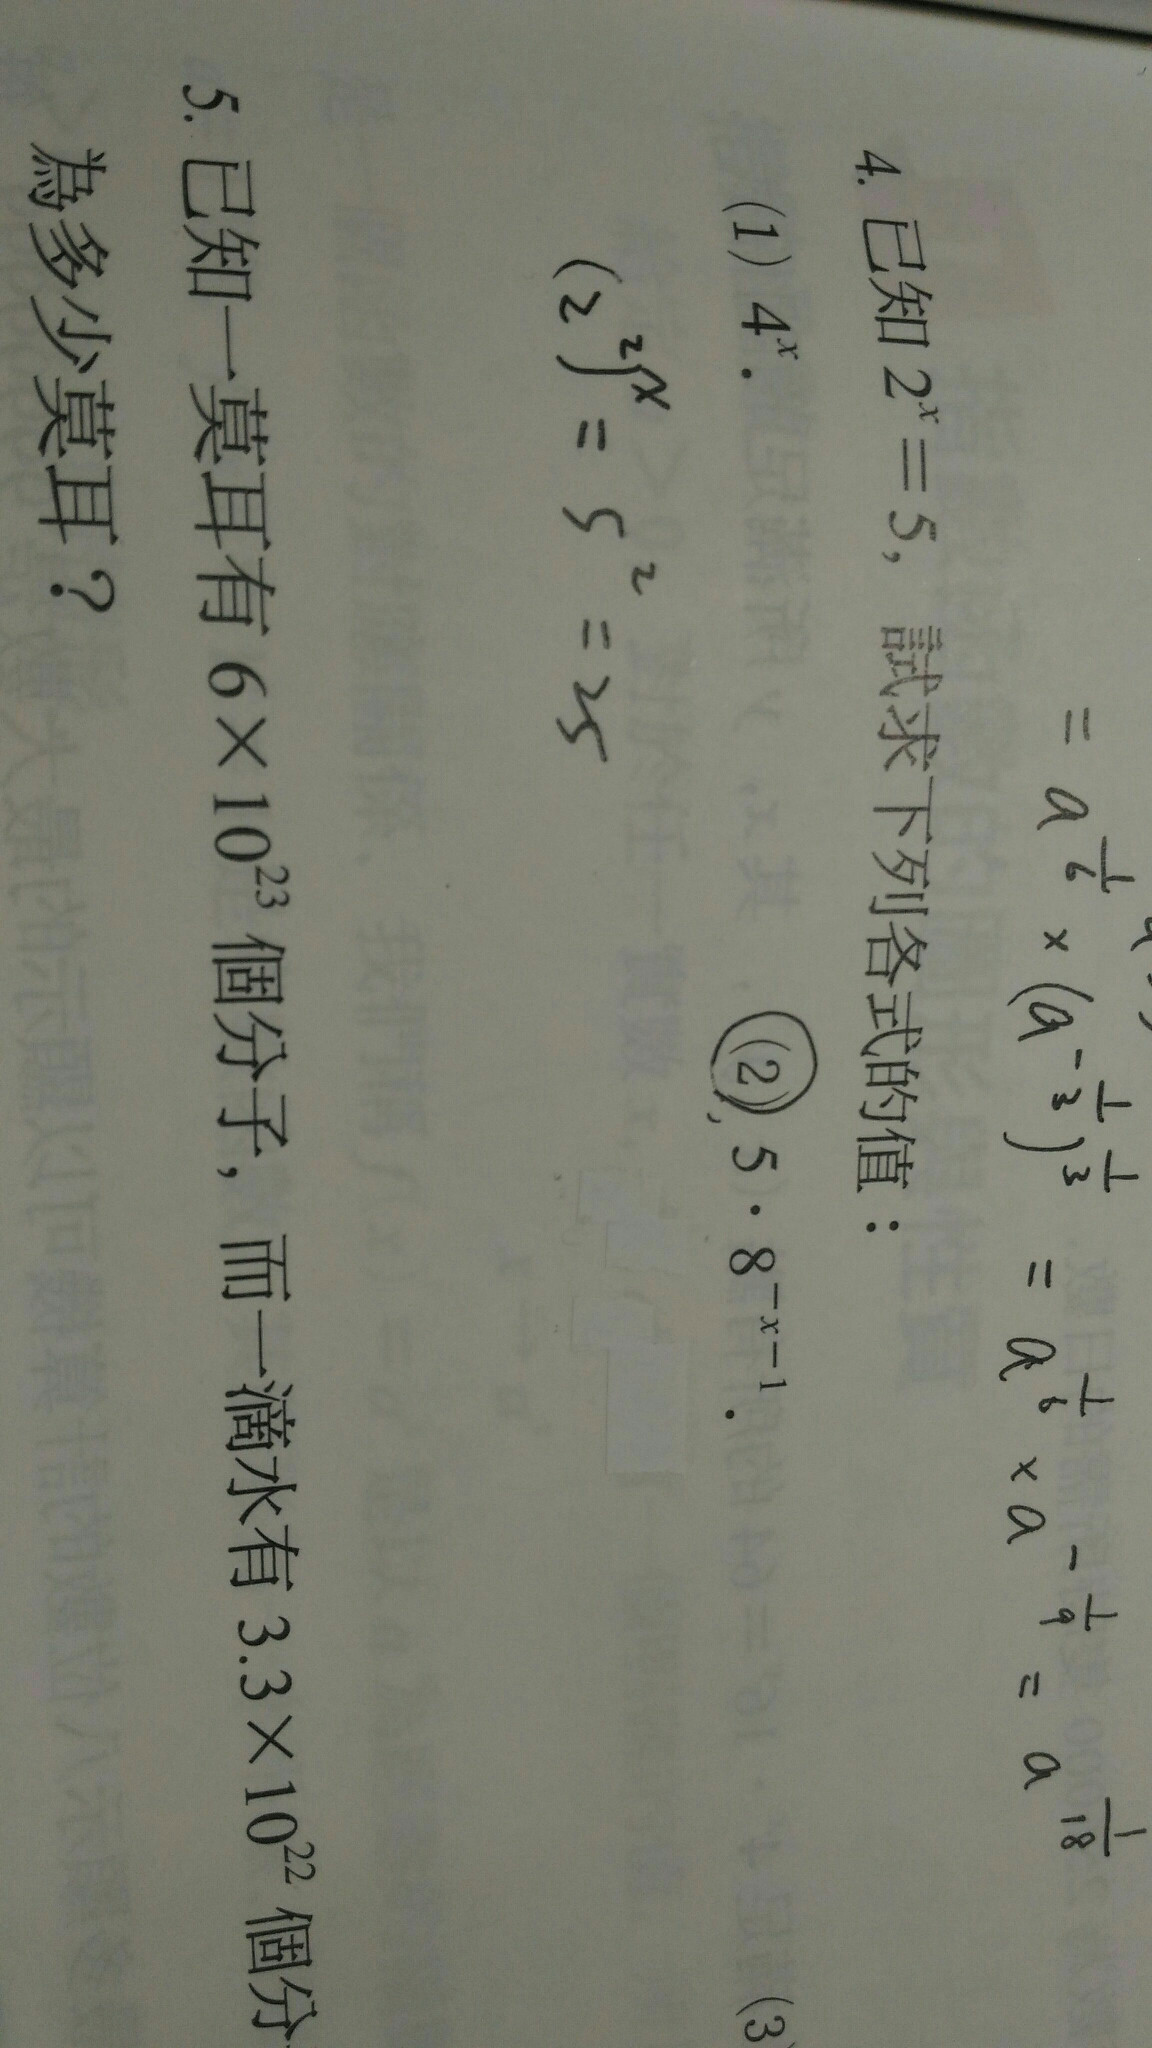 = a^{1/6} × (a^{-1/3})^{1/3} = a^{1/6} × a^{-1/9} = a^{1/18}
4. 已知 2^x = 5, 試求下列各式的值：
(1) 4^x. (2) 5·8^{-x-1}. (3)
(2^2)^x = 5^2 = 25
5. 已知一莫耳有 6×10^{23} 個分子, 而一滴水有 3.3×10^{22} 個分
為多少莫耳？